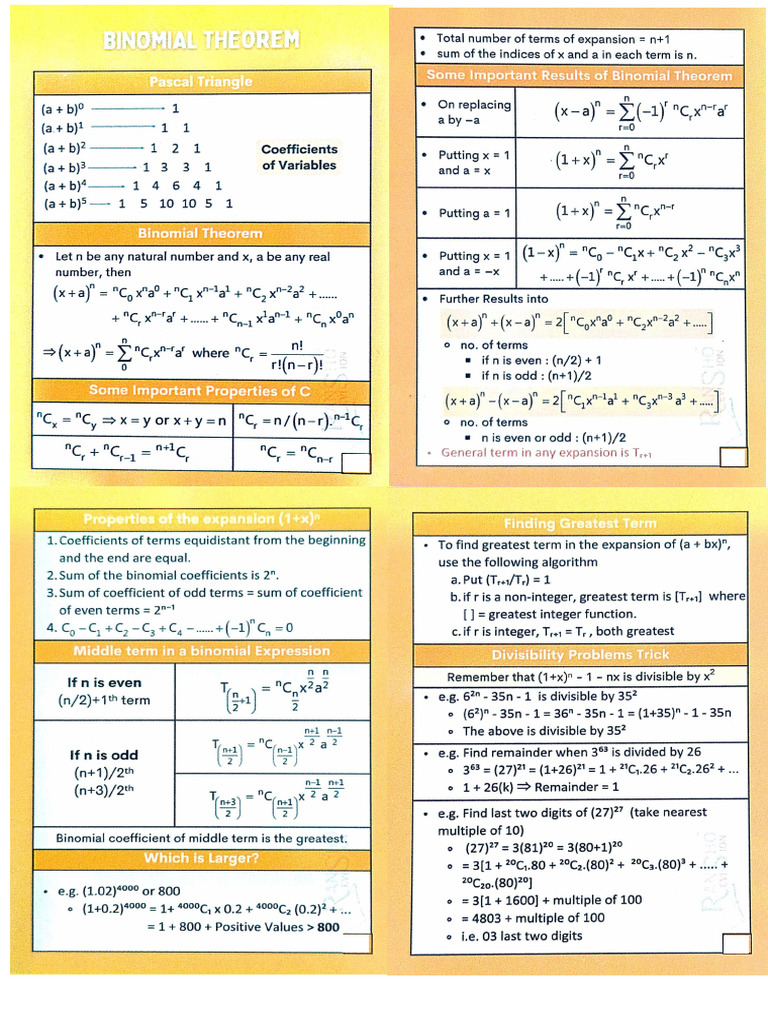 BINOMIAL THEOREM
Pascal Triangle
(a + b)⁰ ⟶ 1
(a + b)¹ ⟶ 1 1
(a + b)² ⟶ 1 2 1
(a + b)³ ⟶ 1 3 3 1
(a + b)⁴ ⟶ 1 4 6 4 1
(a + b)⁵ ⟶ 1 5 10 10 5 1
Coefficients
of Variables
Binomial Theorem
• Let n be any natural number and x, a be any real
number, then
(x + a)ⁿ = ⁿC₀ xⁿa⁰ + ⁿC₁ xⁿ⁻¹a¹ + ⁿC₂ xⁿ⁻²a² + ......
+ ⁿCᵣ xⁿ⁻ʳaʳ + ...... + ⁿCₙ₋₁ x¹aⁿ⁻¹ + ⁿCₙ x⁰aⁿ
⇒ (x + a)ⁿ = ∑₀ⁿ ⁿCᵣxⁿ⁻ʳaʳ where ⁿCᵣ = n! / r!(n − r)!
Some Important Properties of C
ⁿCₓ = ⁿCᵧ ⇒ x = y or x + y = n
ⁿCᵣ = n / (n − r).ⁿ⁻¹Cᵣ
ⁿCᵣ + ⁿCᵣ₋₁ = ⁿ⁺¹Cᵣ
ⁿCᵣ = ⁿCₙ₋ᵣ
• Total number of terms of expansion = n+1
• sum of the indices of x and a in each term is n.
Some Important Results of Binomial Theorem
• On replacing
a by −a
(x − a)ⁿ = ∑ᵣ₌₀ⁿ (−1)ʳ ⁿCᵣxⁿ⁻ʳaʳ
• Putting x = 1
and a = x
(1 + x)ⁿ = ∑ᵣ₌₀ⁿ ⁿCᵣxʳ
• Putting a = 1
(1 + x)ⁿ = ∑ᵣ₌₀ⁿ ⁿCᵣxⁿ⁻ʳ
• Putting x = 1
and a = −x
(1 − x)ⁿ = ⁿC₀ − ⁿC₁x + ⁿC₂ x² − ⁿC₃x³
+ ..... + (−1)ʳ ⁿCᵣ xʳ + ..... + (−1)ⁿ ⁿCₙxⁿ
• Further Results into
(x + a)ⁿ + (x − a)ⁿ = 2[ⁿC₀xⁿa⁰ + ⁿC₂xⁿ⁻²a² + .....]
○ no. of terms
▪ if n is even : (n/2) + 1
▪ if n is odd : (n+1)/2
(x + a)ⁿ − (x − a)ⁿ = 2[ⁿC₁xⁿ⁻¹a¹ + ⁿC₃xⁿ⁻³ a³ + .....]
○ no. of terms
▪ n is even or odd : (n+1)/2
• General term in any expansion is Tᵣ₊₁
Properties of the expansion (1+x)ⁿ
1. Coefficients of terms equidistant from the beginning
and the end are equal.
2. Sum of the binomial coefficients is 2ⁿ.
3. Sum of coefficient of odd terms = sum of coefficient
of even terms = 2ⁿ⁻¹
4. C₀ − C₁ + C₂ − C₃ + C₄ − ...... + (−1)ⁿ Cₙ = 0
Middle term in a binomial Expression
If n is even
(n/2)+1ᵗʰ term
T_(n/2+1) = ⁿC_(n/2) x^(n/2) a^(n/2)
If n is odd
(n+1)/2ᵗʰ
(n+3)/2ᵗʰ
T_((n+1)/2) = ⁿC_((n−1)/2) x^((n+1)/2) a^((n−1)/2)
T_((n+3)/2) = ⁿC_((n+1)/2) x^((n−1)/2) a^((n+1)/2)
Binomial coefficient of middle term is the greatest.
Which is Larger?
• e.g. (1.02)⁴⁰⁰⁰ or 800
○ (1+0.2)⁴⁰⁰⁰ = 1+ ⁴⁰⁰⁰C₁ x 0.2 + ⁴⁰⁰⁰C₂ (0.2)² + ...
= 1 + 800 + Positive Values > 800
Finding Greatest Term
• To find greatest term in the expansion of (a + bx)ⁿ,
use the following algorithm
a. Put (Tᵣ₊₁/Tᵣ) = 1
b. if r is a non-integer, greatest term is [Tᵣ₊₁] where
[ ] = greatest integer function.
c. if r is integer, Tᵣ₊₁ = Tᵣ , both greatest
Divisibility Problems Trick
Remember that (1+x)ⁿ − 1 − nx is divisible by x²
• e.g. 6²ⁿ - 35n - 1 is divisible by 35²
○ (6²)ⁿ - 35n - 1 = 36ⁿ - 35n - 1 = (1+35)ⁿ - 1 - 35n
○ The above is divisible by 35²
• e.g. Find remainder when 3⁶³ is divided by 26
○ 3⁶³ = (27)²¹ = (1+26)²¹ = 1 + ²¹C₁.26 + ²¹C₂.26² + ...
○ 1 + 26(k) ⇒ Remainder = 1
• e.g. Find last two digits of (27)²⁷ (take nearest
multiple of 10)
○ (27)²⁷ = 3(81)²⁰ = 3(80+1)²⁰
○ = 3[1 + ²⁰C₁.80 + ²⁰C₂.(80)² + ²⁰C₃.(80)³ + ..... +
²⁰C₂₀.(80)²⁰]
○ = 3[1 + 1600] + multiple of 100
○ = 4803 + multiple of 100
○ i.e. 03 last two digits